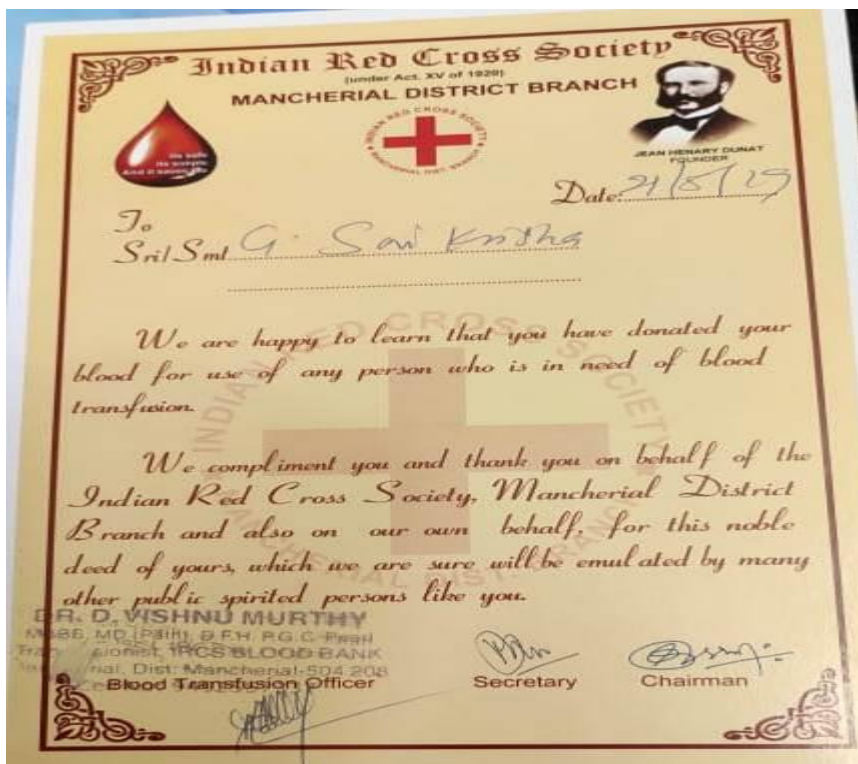 Indian Red Cross Society
(under Act. XV of 1920)
MANCHERIAL DISTRICT BRANCH
INDIAN RED CROSS SOCIETY
MANCHERIAL DIST. BRANCH
And it saves life
JEAN HENARY DUNAT
FOUNDER
Date: 21/5/19
To
Sri/Smt G. Sai Krishna
We are happy to learn that you have donated your
blood for use of any person who is in need of blood
transfusion.
We compliment you and thank you on behalf of the
Indian Red Cross Society, Mancherial District
Branch and also on our own behalf, for this noble
deed of yours, which we are sure will be emulated by many
other public spirited persons like you.
INDIAN RED CROSS SOCIETY
MANCHERIAL DIST. BRANCH
DR. D. VISHNU MURTHY
MBBS, MD (Path), D.F.H. P.G.C.
IRCS BLOOD BANK
Dist: Mancherial-504 208
Blood Transfusion Officer
Secretary
Chairman